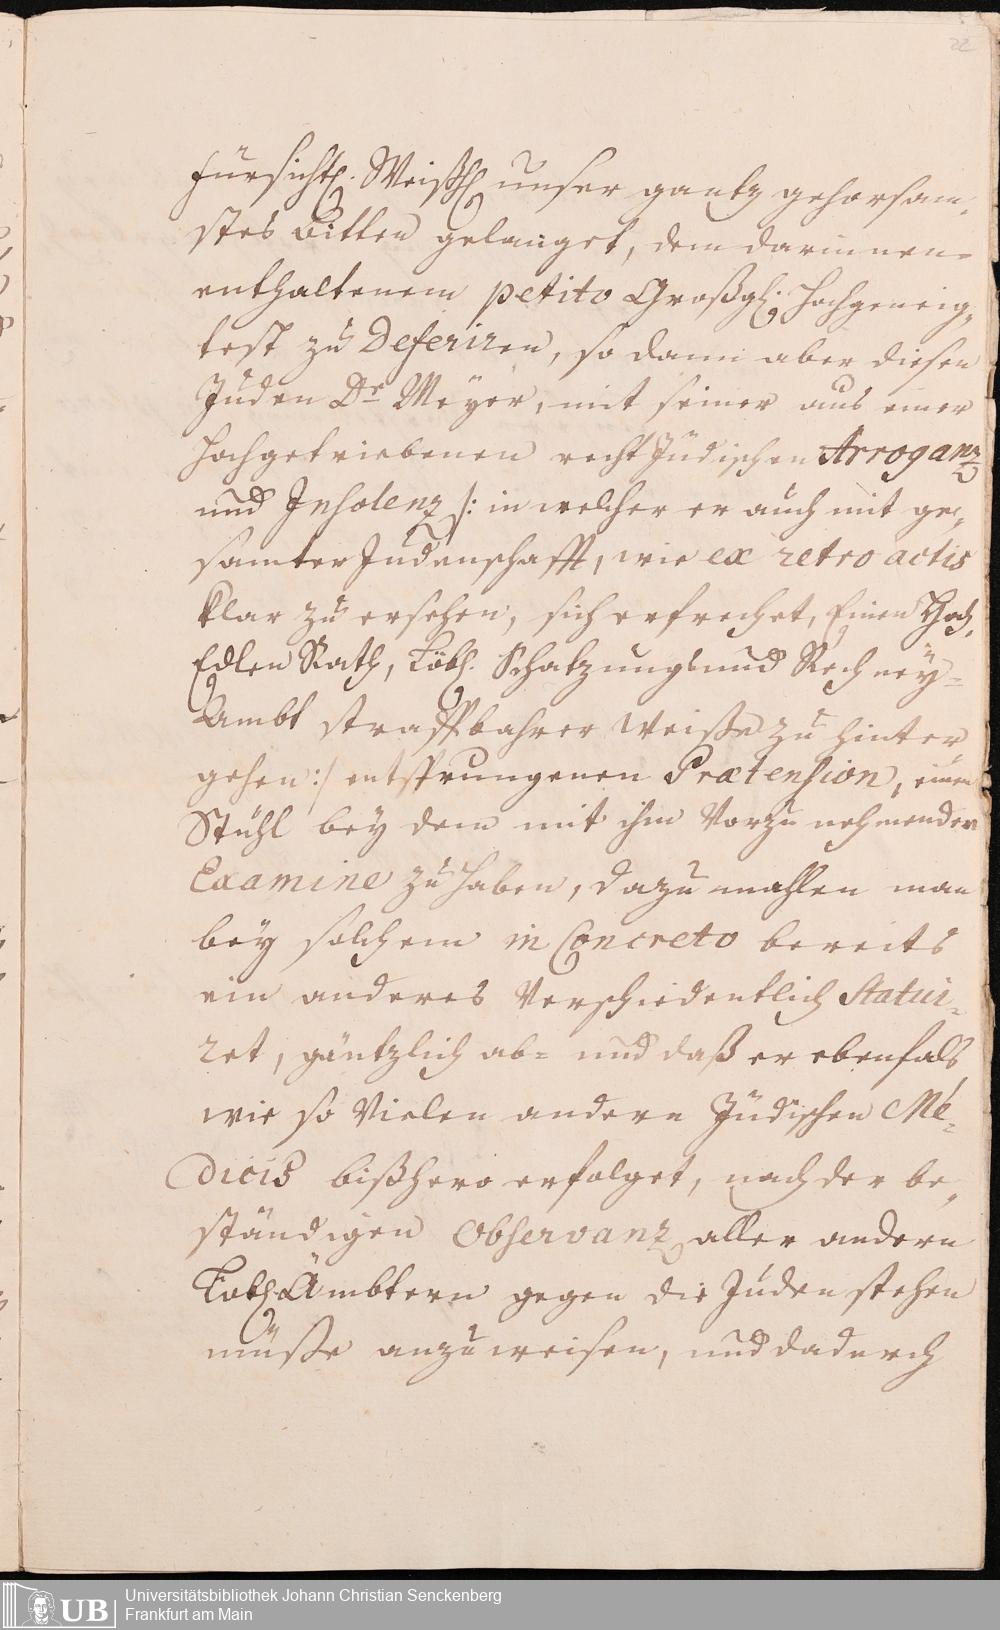 22
Fürsichtl. Weißhl unser gantz gehorsam-
stes Bitten gelanget, dem darinnen-
enthaltenem petito Großgl. hochgeneig-
test zu Deferiren, so dann aber diesen
Juden Dr Meyer, mit seiner aus einer
hochgetriebenen recht Jüdischen Arroganz
und Insolenz /: in welcher er auch mit ge-
samter Judenschafft, wie ex retro actis
klar zu ersehen, sich erfrechet, Einen Hoch-
Edlen Rath, Löbl. Schatzungs und Rechney-
Ambt straffbahrer Weiße zu hinter
gehen :/ entsprungenen Prætension, einen
Stuhl bey dem mit ihm Vorzunehmenden
Examine zu haben, dazumahlen man
bey solchem in Concreto bereits
ein anderes Verschiedentlich Statui-
ret, gäntzlich ab- und daß er ebenfals
wie so Vielen andern Jüdischen Me-
dicis bißhero erfolget, nach der be-
ständigen Observanz aller andern
Löbl Ämbtern gegen die Juden stehen
müße anzuweisen, und dadurch
UB
Universitätsbibliothek Johann Christian Senckenberg
Frankfurt am Main